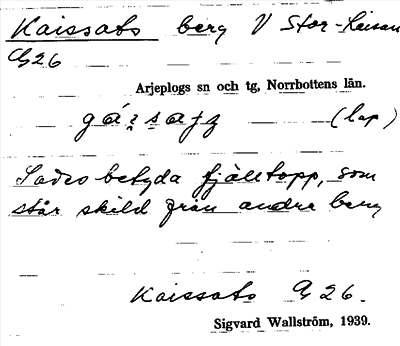 Kaissats berg V Stor-Kaisan
G26
Arjeplogs sn och tg, Norrbottens län.
(lap)
Sades betyda fjälltopp, som
står skild från andra berg
Kaissats G 26.
Sigvard Wallström, 1939.